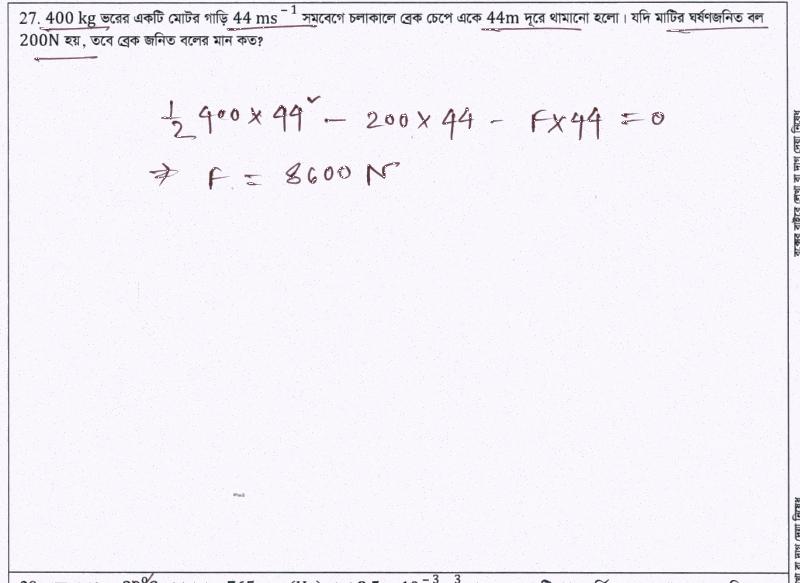 27. 400 kg ভরের একটি মোটর গাড়ি 44 ms⁻¹ সমবেগে চলাকালে ব্রেক চেপে একে 44m দূরে থামানো হলো। যদি মাটির ঘর্ষণজনিত বল
200N হয়, তবে ব্রেক জনিত বলের মান কত?
½ 400 × 44² − 200 × 44 − F × 44 = 0
⇒ F = 8600 N